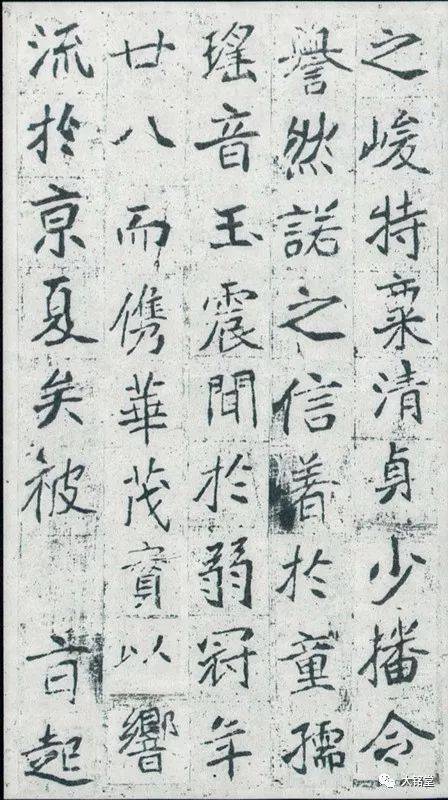 之峻特禀清貞少播令
譽然諾之信著於童孺
瑤音玉震聞於弱冠年
廿八而儁華茂實以響
流於京夏矣被 旨起
大铭堂